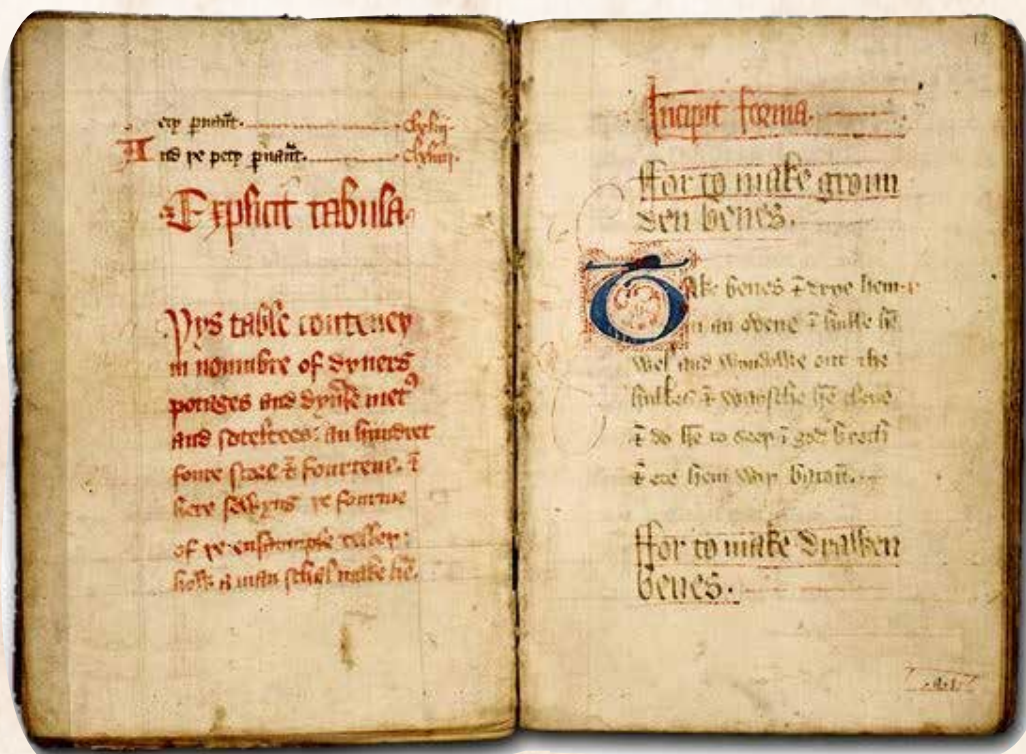 ery pnaūt.
And þe pety pnaūt.
Explicit tabula
Þys table conteneþ
in noumbre of dyuers
potages and dyuse met⁹
and soteltees: an hundret
foure score & fourtene. &
here sewyng þe fourme
of þe ensaumple telleþ:
how a man schal make hē.
Incipit forma.
ffor to make groun
den benes.
Take benes & drye hem
in an ovene & hulle hē
wel and wyndwe out the
hulkes & waysche hē clene
& do hē to seeþ ī god broth
& ete hem wiþ bacoū.
ffor to make drawen
benes.